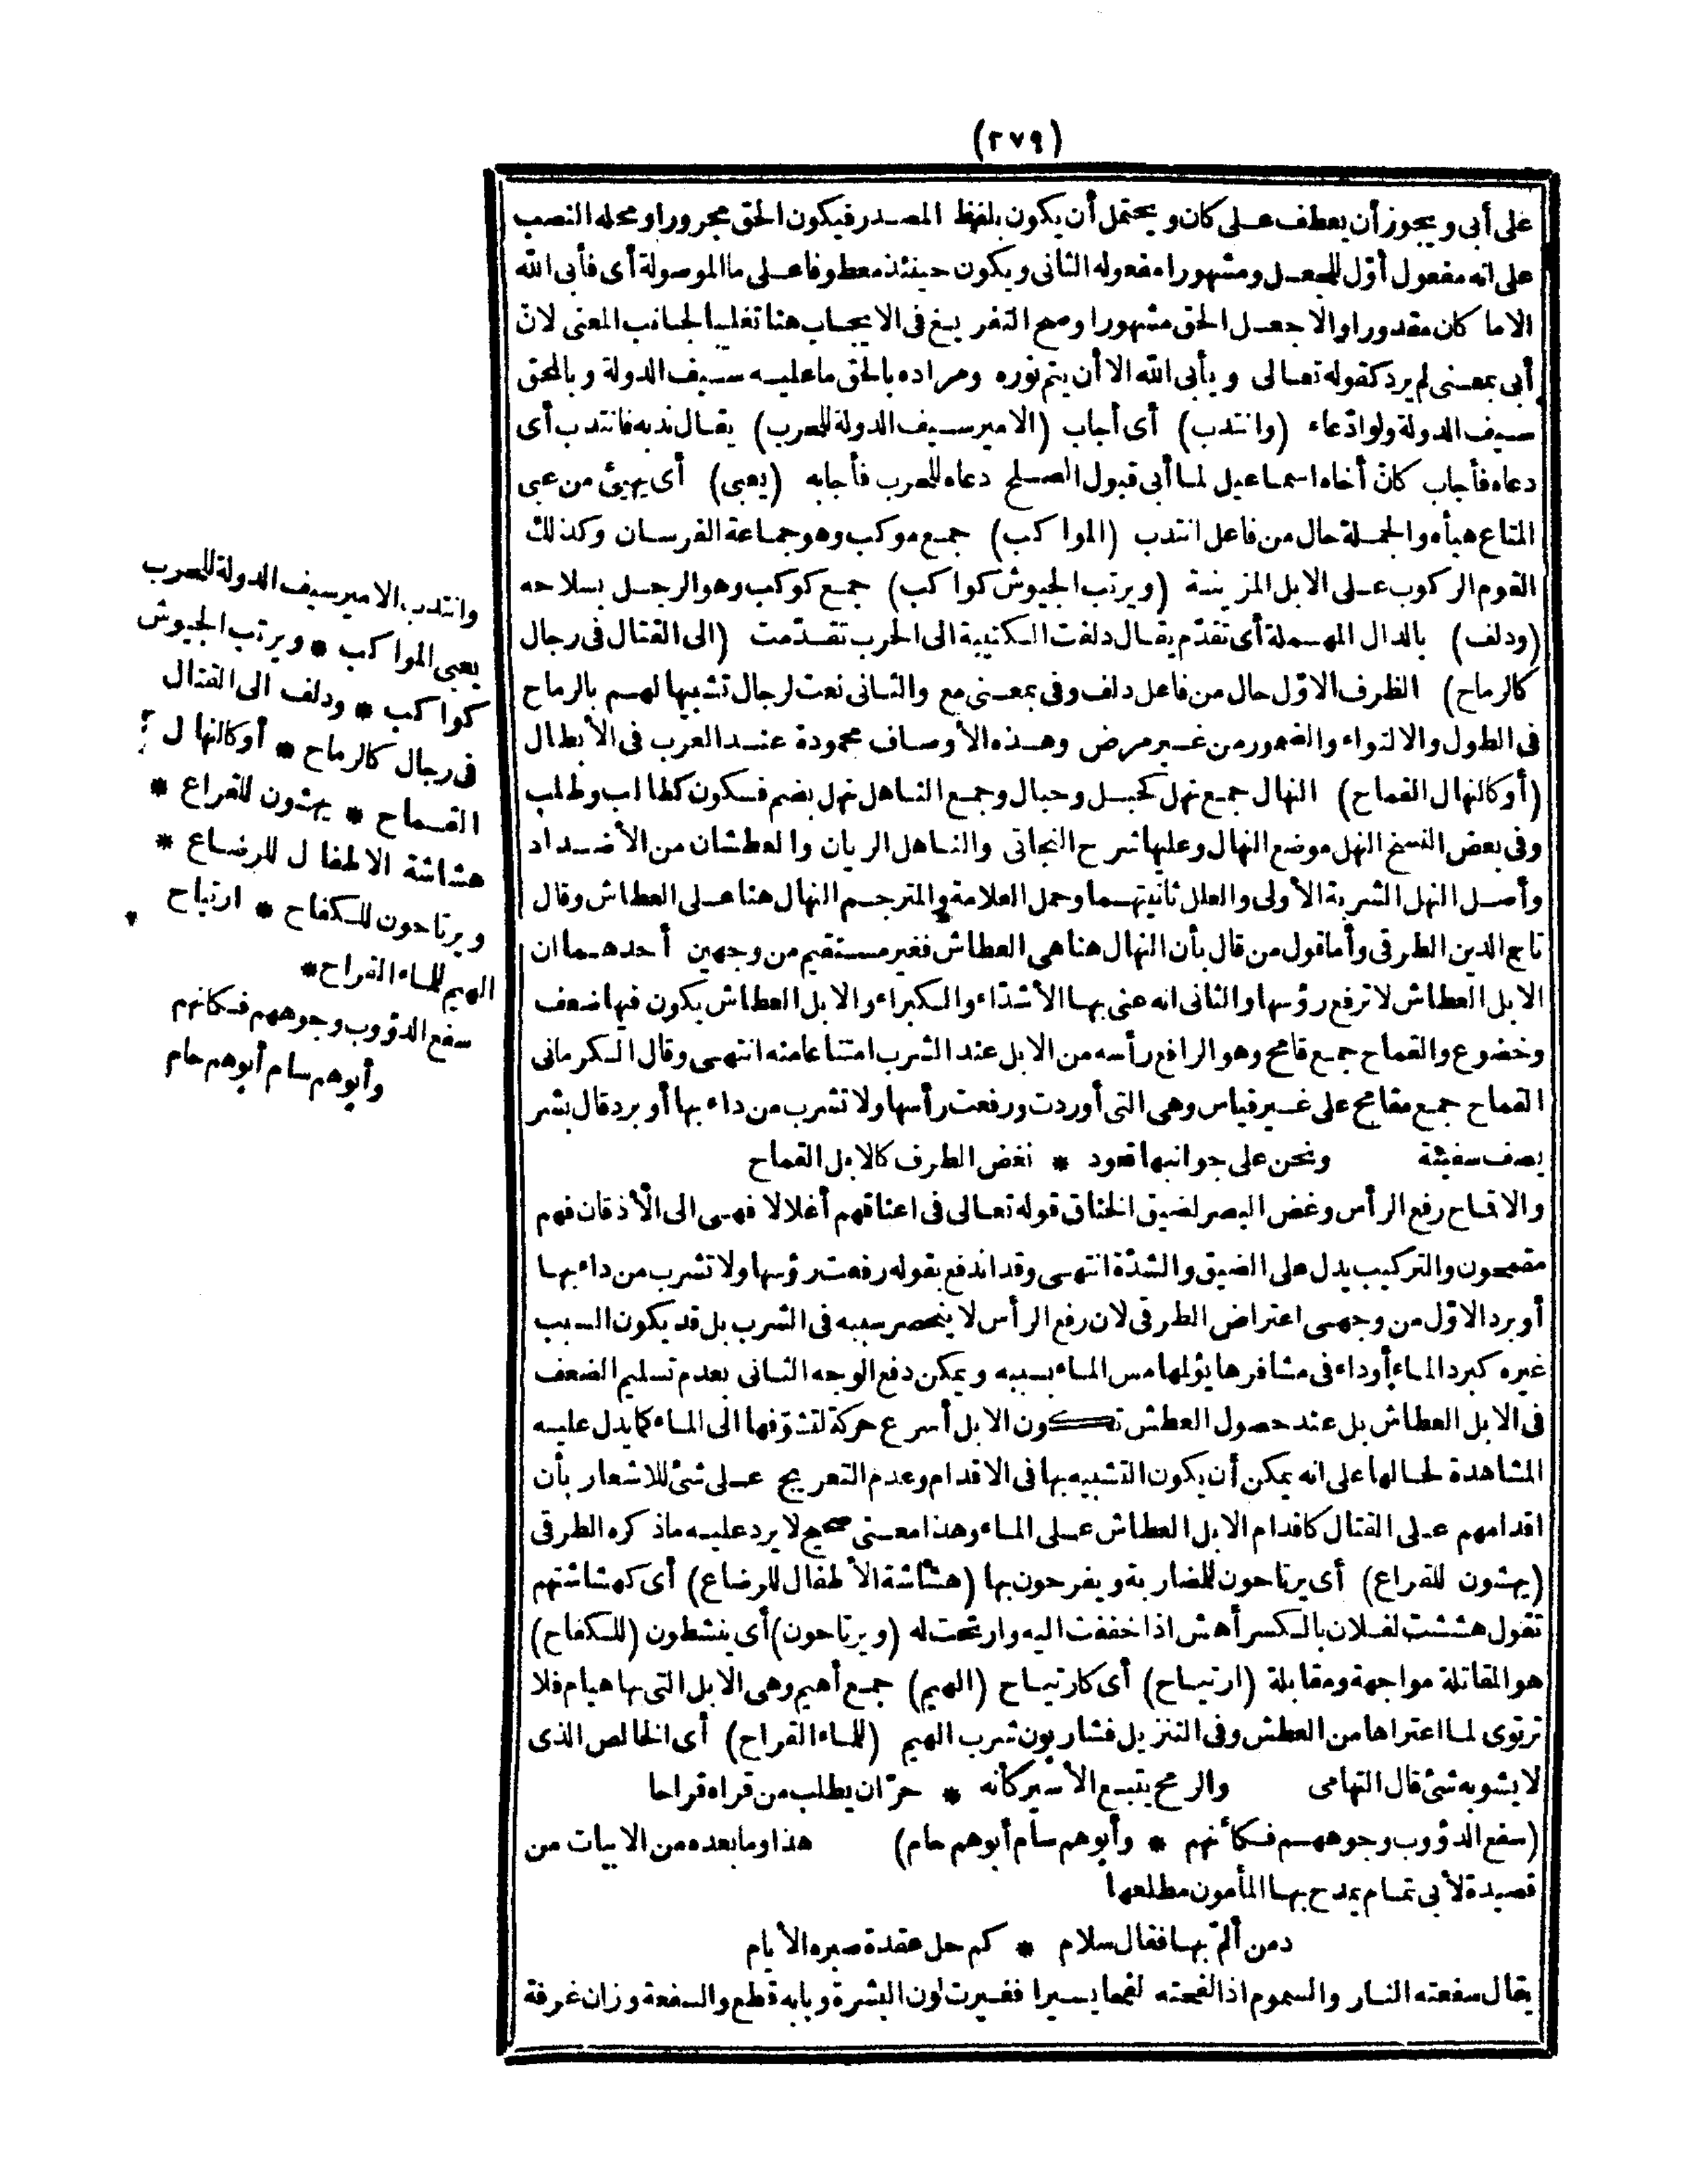 (٢٧٩)
على أبى ويجوز أن يعطف على كان ويحتمل أن يكون بلفظ المصدر فيكون الحق مجرورا ومحله النصب
على انه مفعول أوّل للجعل ومشهورا مفعوله الثانى ويكون حينئذ معطوفا على ما الموصولة أى فأبى الله
الا ما كان مقدورا والا جعل الحق مشهورا وصح التفريغ فى الايجاب هنا تغليبا لجانب المعنى لانّ
أبى بمعنى لم يرد كقوله تعالى ويأبى الله الا أن يتم نوره ومراده بالحق ما عليه سيف الدولة وبالمحق
سيف الدولة ولو ادّعاء (وانتدب) أى أجاب (الامير سيف الدولة للحرب) يقال ندبه فانتدب أى
دعاه فأجاب كانّ أخاه اسماعيل لما أبى قبول الصلح دعاه للحرب فأجابه (يعبى) أى يهيئ من عبى
المتاع هيأه والجملة حال من فاعل انتدب (المواكب) جمع موكب وهو جماعة الفرسان وكذلك
القوم الركوب على الابل المزينة (ويرتب الجيوش كواكب) جمع كوكب وهو الرجل بسلاحه
(ودلف) بالدال المهملة أى تقدّم يقال دلفت الكتيبة الى الحرب تقدّمت (الى القتال فى رجال
كالرماح) الظرف الاوّل حال من فاعل دلف وفى بمعنى مع والثانى نعت لرجال تشبيها لهم بالرماح
فى الطول والالتواء والضمور من غير مرض وهذه الأوصاف محمودة عند العرب فى الأبطال
(أو كالنهال القماح) النهال جمع نهل كجبل وجبال وجمع الناهل نهل بضم فسكون كطالب وطلب
وفى بعض النسخ النهل موضع النهال وعليها شرح النجاتى والناهل الريان والعطشان من الأضداد
وأصل النهل الشربة الأولى والعلل ثانيتهما وحمل العلامة والمترجم النهال هنا على العطاش وقال
تاج الدين الطرقى وأما قول من قال بأن النهال هنا هى العطاش فغير مستقيم من وجهين أحدهما ان
الابل العطاش لا ترفع رؤسها والثانى انه عنى بها الأشدّاء والكبراء والابل العطاش يكون فيها ضعف
وخضوع والقماح جمع قامح وهو الرافع رأسه من الابل عند الشرب امتناعا منه انتهى وقال الكرمانى
القماح جمع مقامح على غير قياس وهى التى أوردت ورفعت رأسها ولا تشرب من داء بها أو برد قال بشر
يصف سفينة ونحن على جوانبها قعود * نغض الطرف كالابل القماح
والاقماح رفع الرأس وغض البصر لضيق الخناق قوله تعالى فى اعناقهم أغلالا فهى الى الأذقان فهم
مقمحون والتركيب يدل على الضيق والشدّة انتهى وقد اندفع بقوله رفعت رؤسها ولا تشرب من داء بها
أو برد الاوّل من وجهى اعتراض الطرقى لان رفع الرأس لا ينحصر سببه فى الشرب بل قد يكون السبب
غيره كبرد الماء أو داء فى مشافرها يؤلمها مس الماء بسببه ويمكن دفع الوجه الثانى بعدم تسليم الضعف
فى الابل العطاش بل عند حصول العطش تكون الابل أسرع حركة لتشوّفها الى الماء كما يدل عليه
المشاهدة لحالها على انه يمكن أن يكون التشبيه بها فى الاقدام وعدم التعريج على شئ للاشعار بأن
اقدامهم على القتال كاقدام الابل العطاش على الماء وهذا معنى صحيح لا يرد عليه ما ذكره الطرقى
(يهشون للقراع) أى يرتاحون للمضاربة ويفرحون بها (هشاشة الأطفال للرضاع) أى كهشاشتهم
تقول هششت لفلان بالكسر أهش اذا خففت اليه وارتحت له (ويرتاحون) أى ينشطون (للكفاح)
هو المقاتلة مواجهة ومقابلة (ارتياح) أى كارتياح (الهيم) جمع أهيم وهى الابل التى بها هيام فلا
ترتوى لما اعتراها من العطش وفى التنزيل فشاربون شرب الهيم (للماء القراح) أى الخالص الذى
لا يشوبه شئ قال التهامى والرمح يتبع الأسير كأنه * حرّان يطلب من قراه قراحا
(سفع الدؤوب وجوههم فكأنهم * وأبوهم سام أبوهم حام) هذا وما بعده من الابيات من
قصيدة لأبى تمام يمدح بها المأمون مطلعها
دمن ألمّ بها فقال سلام * كم حل عقدة صبره الأيام
يقال سفعته النار والسموم اذا لفحته لفحا يسيرا فغيرت لون البشرة وبابه قطع والسفعة وزان غرفة
وانتدب الامير سيف الدولة للحرب
يعبى المواكب * ويرتب الجيوش
كواكب * ودلف الى القتال
فى رجال كالرماح * أو كالنهال
القماح * يهشون للقراع *
هشاشة الاطفال للرضاع *
ويرتاحون للكفاح * ارتياح *
الهيم للماء القراح *
سفع الدؤوب وجوههم فكانهم
وأبوهم سام أبوهم حام